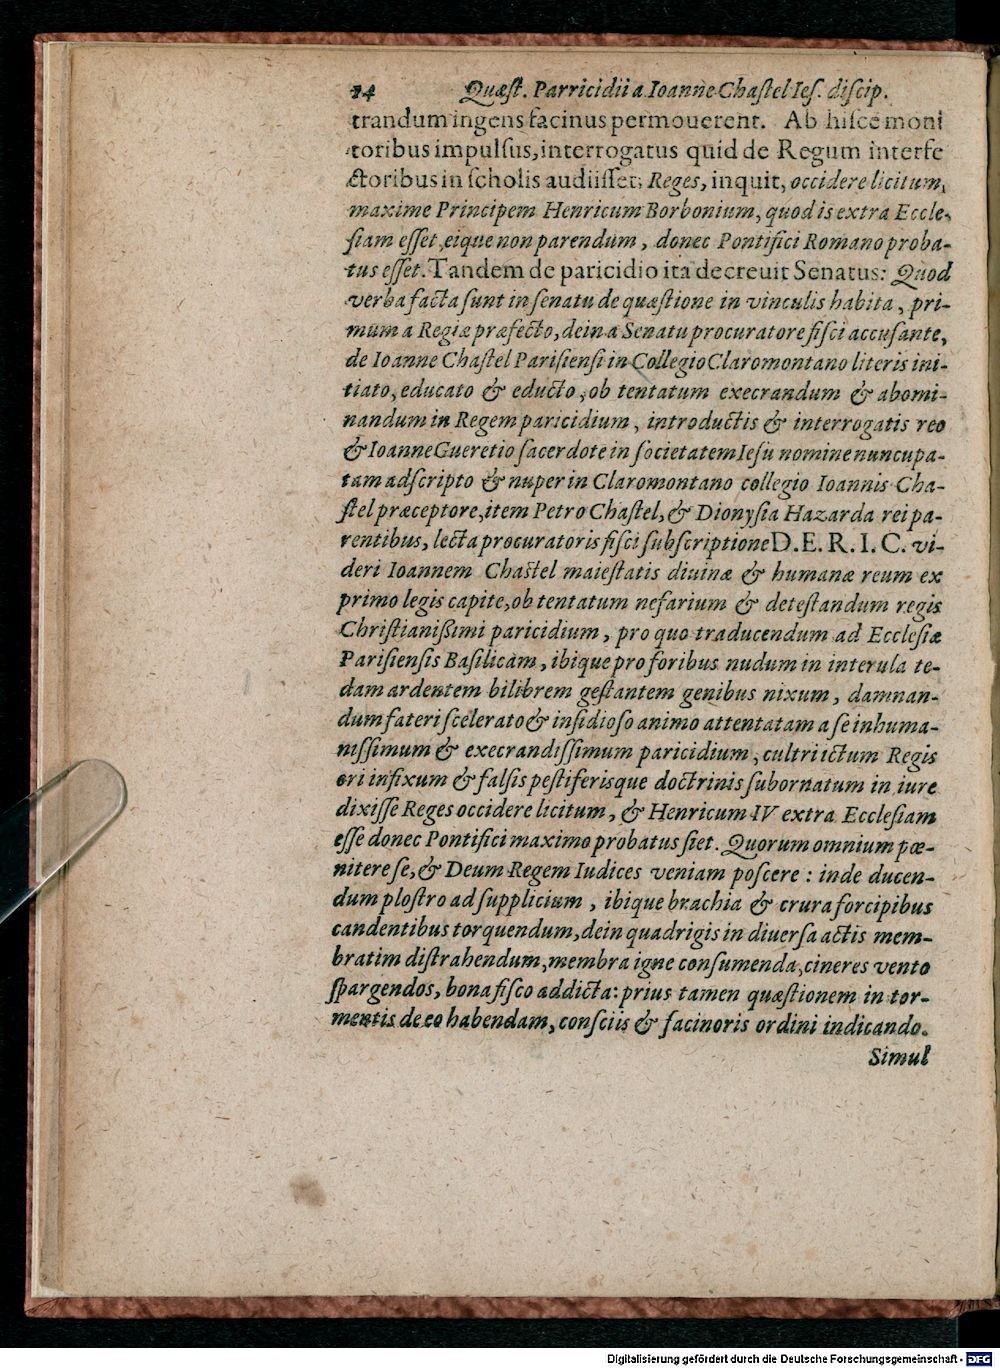 14 Quæſt. Parricidii a Ioanne Chaſtel Ieſ. diſcip.
trandum ingens facinus permouerent. Ab hiſce moni
toribus impulſus, interrogatus quid de Regum interfe
ctoribus in ſcholis audiiſſet; Reges, inquit, occidere licitum,
maxime Principem Henricum Borbonium, quod is extra Eccle-
ſiam eſſet, eique non parendum, donec Pontifici Romano proba-
tus eſſet. Tandem de paricidio ita decreuit Senatus: Quod
verba facta ſunt in ſenatu de quæſtione in vinculis habita, pri-
mùm a Regiæ præfecto, dein a Senatu procuratore fiſci accuſante,
de Ioanne Chaſtel Pariſienſi in Collegio Claromontano literis ini-
tiato, educato & educto, ob tentatum execrandum & abomi-
nandum in Regem paricidium, introductis & interrogatis reo
& Ioanne Gueretio ſacerdote in ſocietatem Ieſu nomine nuncupa-
tam adſcripto & nuper in Claromontano collegio Ioannis Cha-
ſtel præceptore, item Petro Chaſtel, & Dionyſia Hazarda rei pa-
rentibus, lecta procuratoris fiſci ſubſcriptione D. E. R. I. C. vi-
deri Ioannem Chaſtel maieſtatis diuinæ & humanæ reum ex
primo legis capite, ob tentatum nefarium & deteſtandum regis
Chriſtianißimi paricidium, pro quo traducendum ad Eccleſiæ
Pariſienſis Baſilicam, ibique pro foribus nudum in interula te-
dam ardentem bilibrem geſtantem genibus nixum, damnan-
dum fateri ſcelerato & inſidioſo animo attentatam a ſe inhuma-
niſſimum & execrandiſſimum paricidium, cultri ictum Regis
ori infixum & falſis peſtiferisque doctrinis ſubornatum in iure
dixiſſe Reges occidere licitum, & Henricum IV extra Eccleſiam
eſſe donec Pontifici maximo probatus ſiet. Quorum omnium pœ-
nitere ſe, & Deum Regem Iudices veniam poſcere : inde ducen-
dum ploſtro ad ſupplicium, ibique brachia & crura forcipibus
candentibus torquendum, dein quadrigis in diuerſa actis mem-
bratim diſtrahendum, membra igne conſumenda, cineres vento
ſpargendos, bona fiſco addicta: prius tamen quæſtionem in tor-
mentis de eo habendam, conſciis & facinoris ordini indicando.
Simul
Digitalisierung gefördert durch die Deutsche Forschungsgemeinschaft - DFG